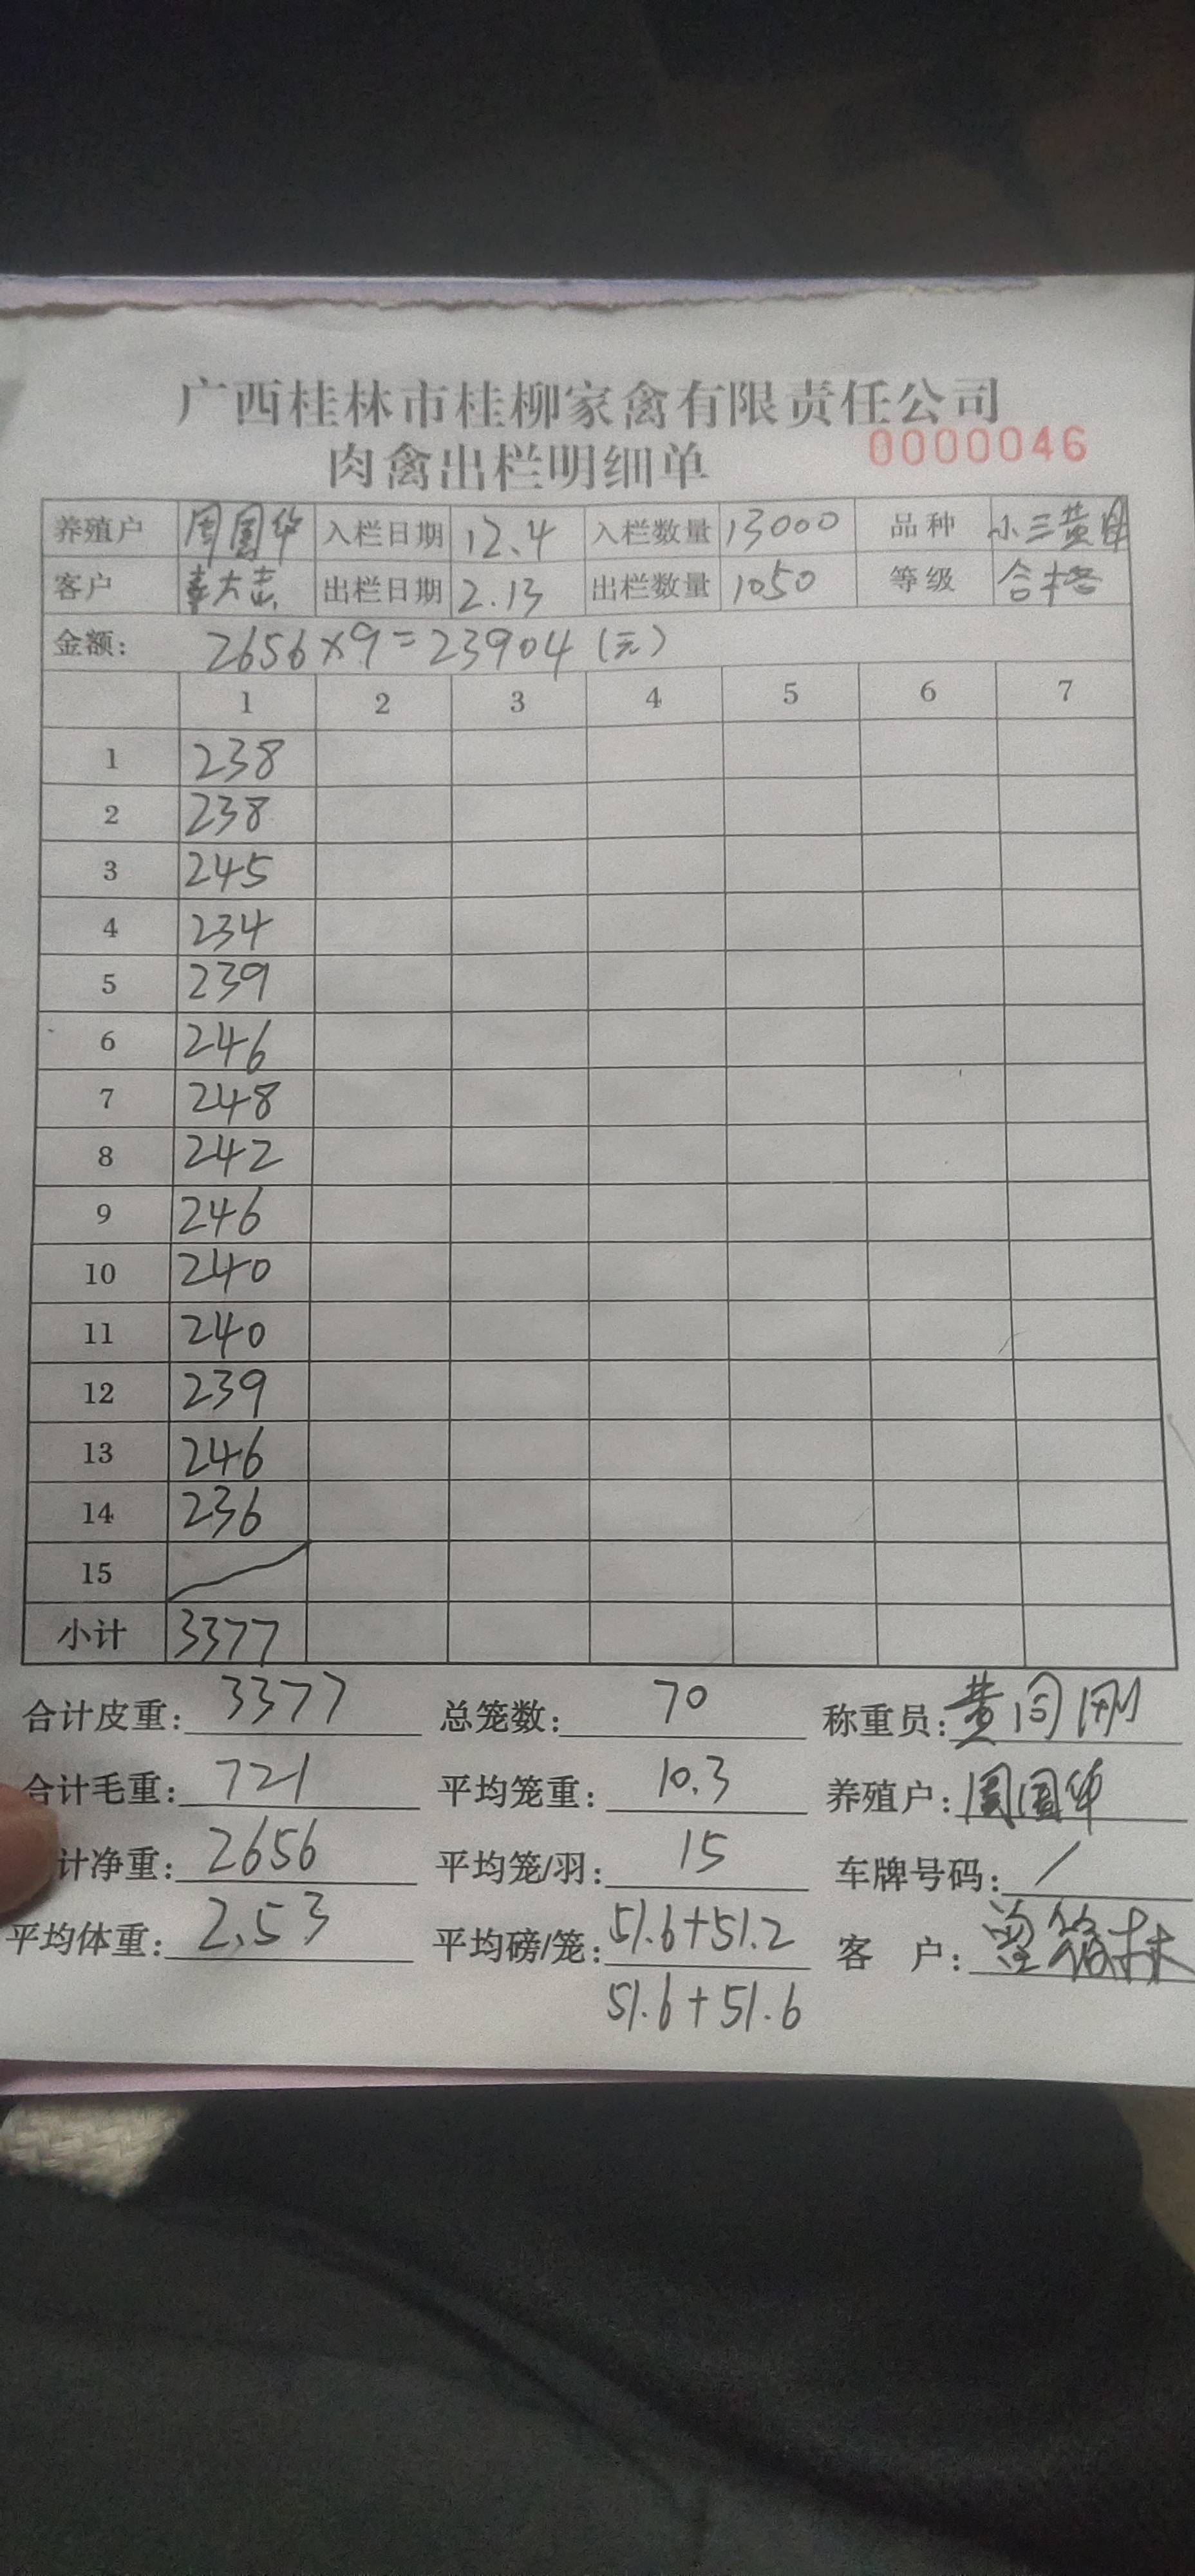 广西桂林市桂柳家禽有限责任公司
肉禽出栏明细单 0000046
养殖户 周国华 入栏日期 12.4 入栏数量 13000 品种 小三黄
客户 大志 出栏日期 2.13 出栏数量 1050 等级 合格
金额: 2656×9=23904(元)
1 2 3 4 5 6 7
1 238
2 238
3 245
4 234
5 239
6 246
7 248
8 242
9 246
10 240
11 240
12 239
13 246
14 236
15
小计 3377
合计皮重: 3377 总笼数: 70 称重员: 黄同刚
合计毛重: 721 平均笼重: 10.3 养殖户: 周国华
计净重: 2656 平均笼/羽: 15 车牌号码: /
平均体重: 2.53 平均磅/笼: 51.6+51.2 客 户:
51.6+51.6